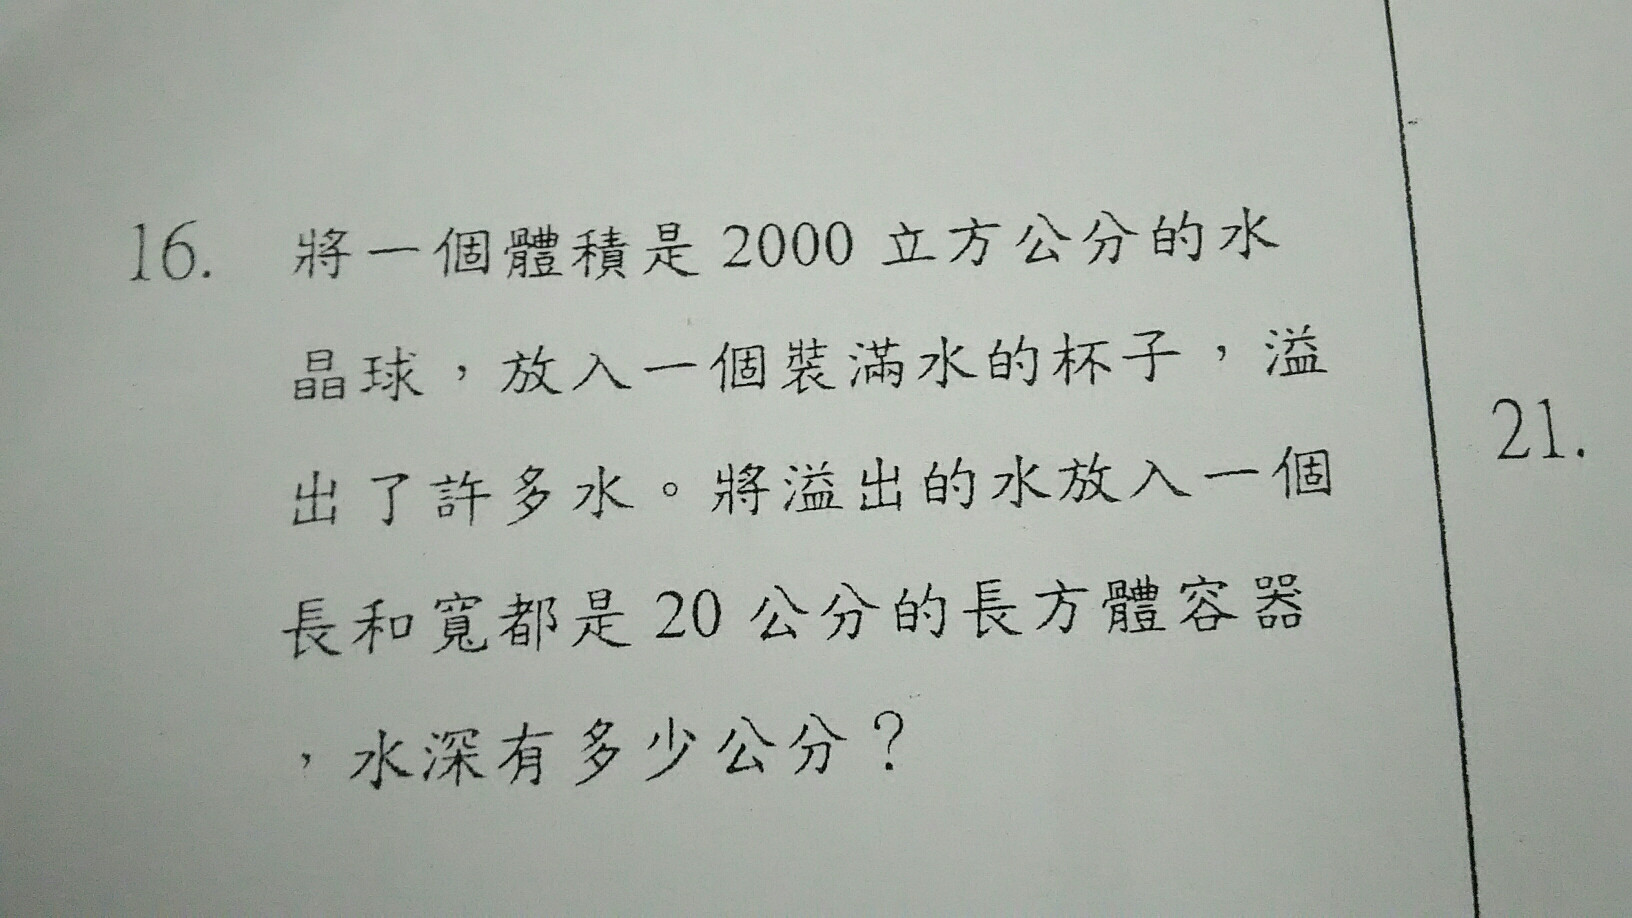 16. 將一個體積是 2000 立方公分的水
晶球，放入一個裝滿水的杯子，溢
出了許多水。將溢出的水放入一個
長和寬都是 20 公分的長方體容器
，水深有多少公分？
21.